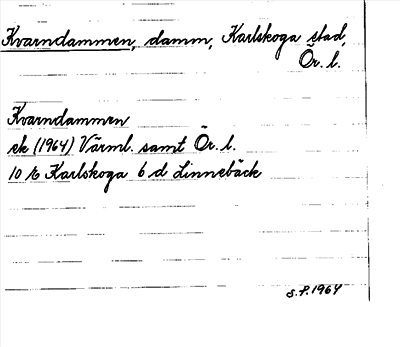 Kvarndammen, damm, Karlskoga stad,
Ör. l.
Kvarndammen
ek (1964) Värml. samt Ör. l.
10 E Karlskoga 6 d Linnebäck
S.P. 1964